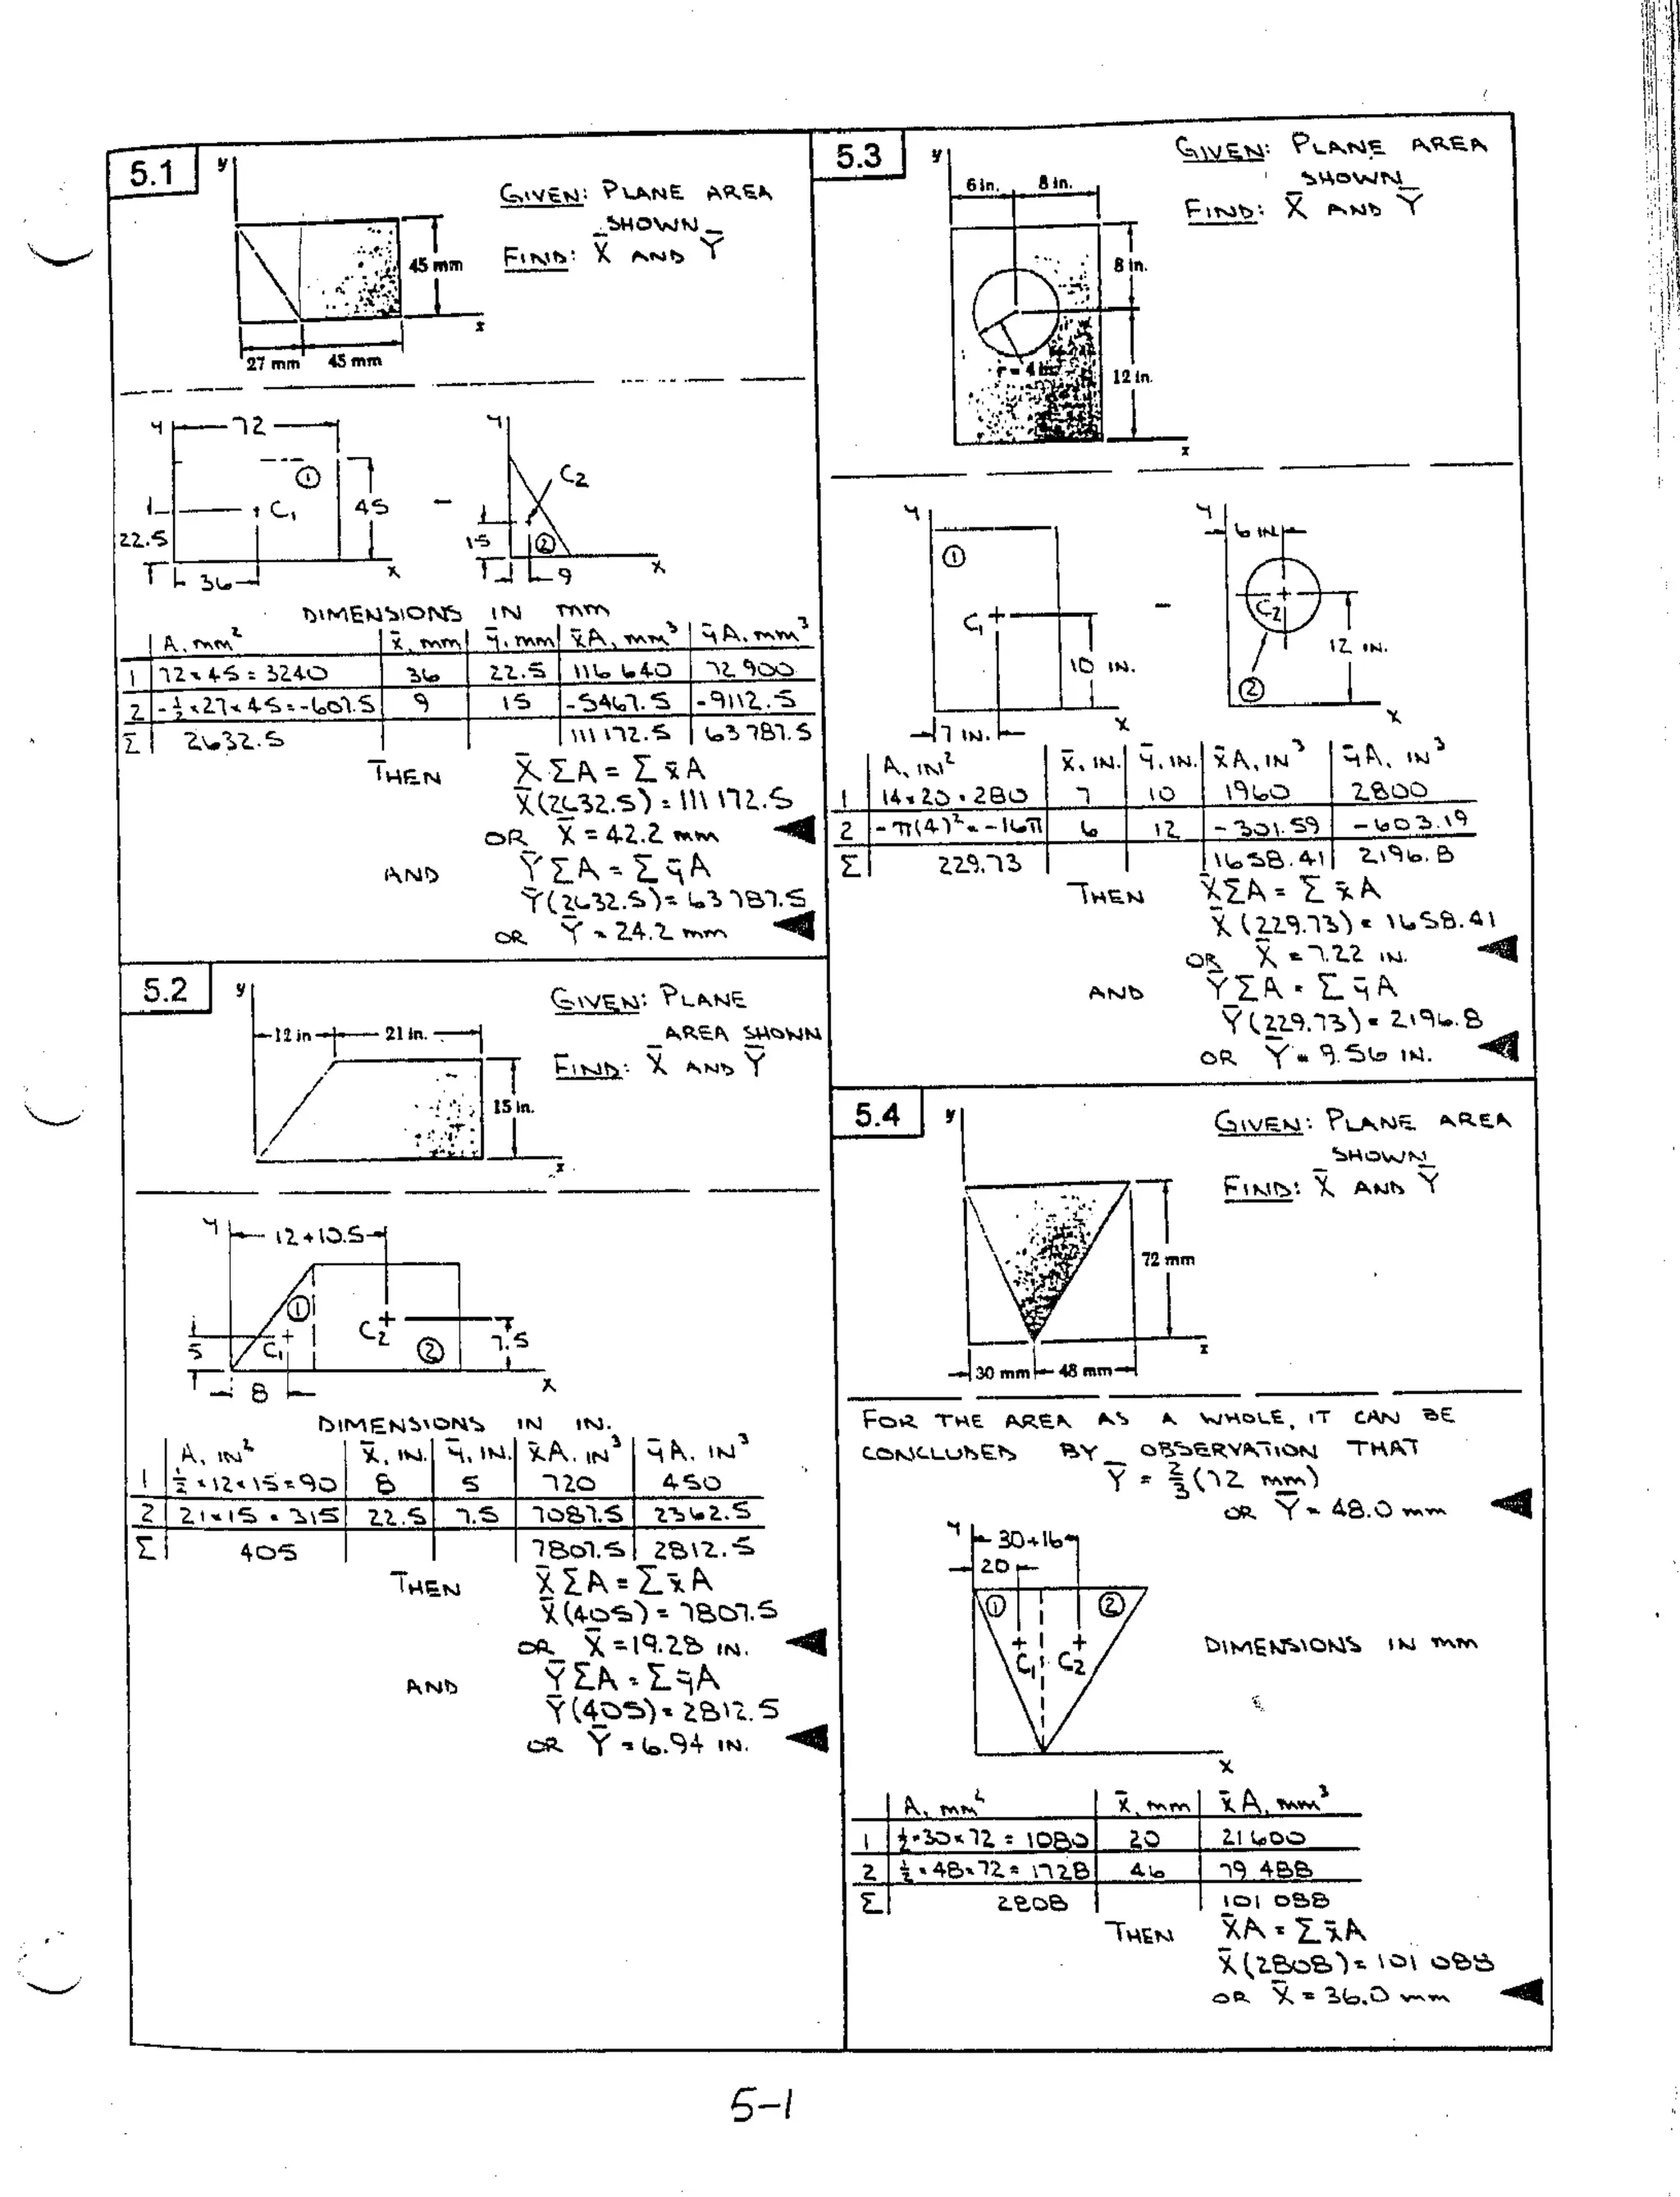 5.1
y
GIVEN: PLANE AREA
SHOWN
FIND: X̄ AND Ȳ
45 mm
x
27 mm 45 mm
y 72
1
C1
45
22.5
36
x
-
y
C2
15
2
9
x
DIMENSIONS IN mm
A, mm² | x̄, mm | ȳ, mm | x̄A, mm³ | ȳA, mm³
1 | 72×45 = 3240 | 36 | 22.5 | 116 640 | 72 900
2 | -½×27×45 = -607.5 | 9 | 15 | -5467.5 | -9112.5
Σ | 2632.5 | | | 111 172.5 | 63 787.5
THEN X̄ΣA = Σx̄A
X̄(2632.5) = 111 172.5
OR X̄ = 42.2 mm
AND ȲΣA = ΣȳA
Ȳ(2632.5) = 63 787.5
OR Ȳ = 24.2 mm
5.2
y
GIVEN: PLANE
AREA SHOWN
FIND: X̄ AND Ȳ
12 in 21 in.
15 in.
x
y 12+10.5
1
C1
C2
2
5
7.5
8
x
DIMENSIONS IN IN.
A, IN² | x̄, IN. | ȳ, IN. | x̄A, IN³ | ȳA, IN³
1 | ½×12×15 = 90 | 8 | 5 | 720 | 450
2 | 21×15 = 315 | 22.5 | 7.5 | 7087.5 | 2362.5
Σ | 405 | | | 7807.5 | 2812.5
THEN X̄ΣA = Σx̄A
X̄(405) = 7807.5
OR X̄ = 19.28 IN.
AND ȲΣA = ΣȳA
Ȳ(405) = 2812.5
OR Ȳ = 6.94 IN.
5.3
y
GIVEN: PLANE AREA
SHOWN
FIND: X̄ AND Ȳ
6 in. 8 in.
8 in.
r = 4 in.
12 in.
x
y
1
C1
10 IN.
7 IN.
x
-
y
6 IN
C2
12 IN.
2
x
A, IN² | x̄, IN. | ȳ, IN. | x̄A, IN³ | ȳA, IN³
1 | 14×20 = 280 | 7 | 10 | 1960 | 2800
2 | -π(4)² = -16π | 6 | 12 | -301.59 | -603.19
Σ | 229.73 | | | 1658.41 | 2196.8
THEN X̄ΣA = Σx̄A
X̄(229.73) = 1658.41
OR X̄ = 7.22 IN.
AND ȲΣA = ΣȳA
Ȳ(229.73) = 2196.8
OR Ȳ = 9.56 IN.
5.4
y
GIVEN: PLANE AREA
SHOWN
FIND: X̄ AND Ȳ
72 mm
x
30 mm 48 mm
FOR THE AREA AS A WHOLE, IT CAN BE
CONCLUDED BY OBSERVATION THAT
Ȳ = ⅔(72 mm)
OR Ȳ = 48.0 mm
y 30+16
20
1 2
C1 C2
DIMENSIONS IN mm
x
A, mm² | x̄, mm | x̄A, mm³
1 | ½×30×72 = 1080 | 20 | 21 600
2 | ½×48×72 = 1728 | 46 | 79 488
Σ | 2808 | | 101 088
THEN X̄A = Σx̄A
X̄(2808) = 101 088
OR X̄ = 36.0 mm
5-1